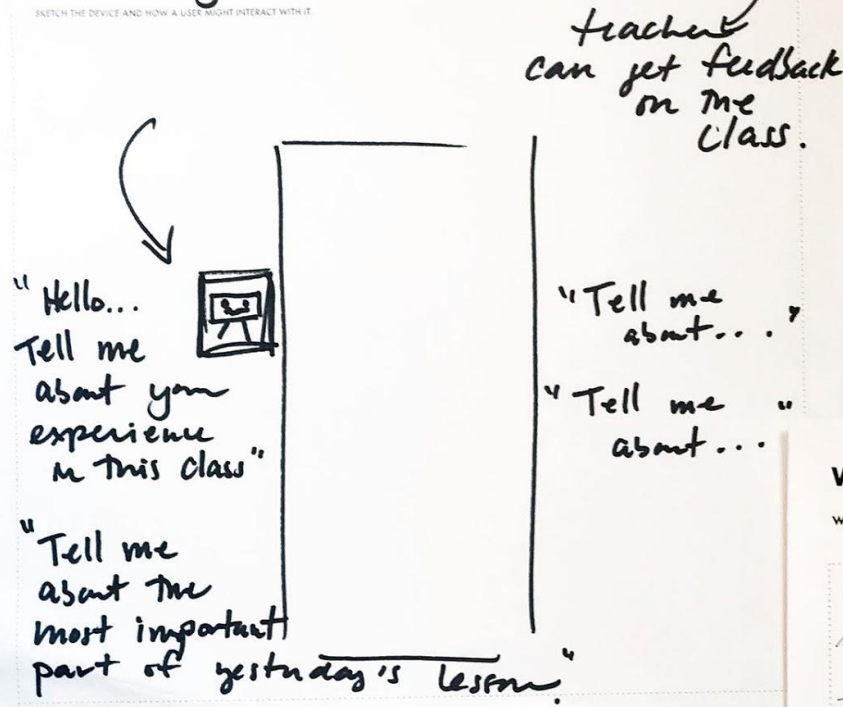 SKETCH THE DEVICE AND HOW A USER MIGHT INTERACT WITH IT.
teacher
can get feedback
on the
class.
"Hello...
Tell me
about your
experience
in this class"
"Tell me
about the
most important
part of yesterday's lesson."
"Tell me
about...."
"Tell me
about..."